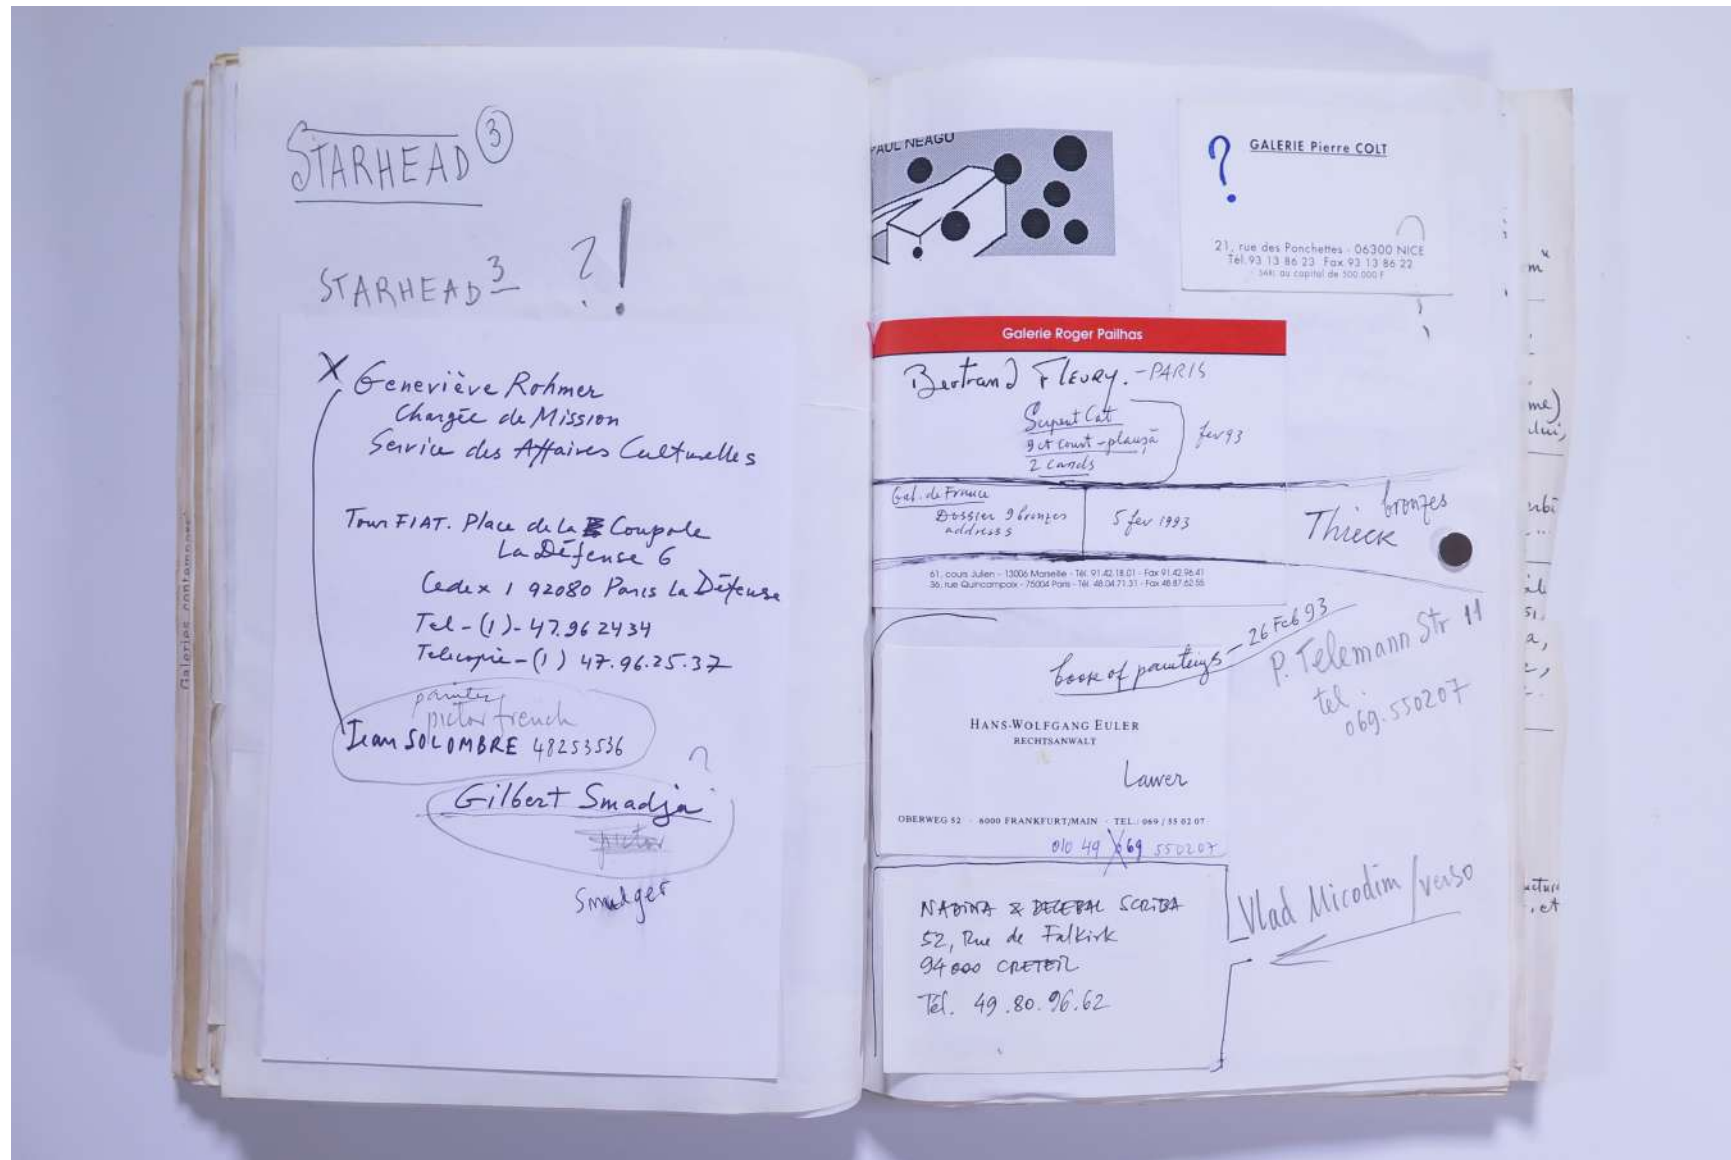 STARHEAD ③
STARHEAD 3 ?!
X Geneviève Rohmer
Chargée de Mission
Service des Affaires Culturelles
Tour FIAT. Place de la Coupole
La Défense 6
Cedex 1 92080 Paris La Défense
Tel-(1)-47.96 2434
Telecopie-(1) 47.96.25.37
painter
pictor french
Jean SOLOMBRE 48253536
?
Gilbert Smadja
pictor
Smudger
Galeries contemporai
PAUL NEAGU
?
GALERIE Pierre COLT
?
21, rue des Ponchettes - 06300 NICE
Tél. 93 13 86 23 Fax 93 13 86 22
SARL au capital de 500.000 F
Galerie Roger Pailhas
Bertrand Fleury. - PARIS
Cat
2 cards
fev 93
Gal. de France
Dossier 9 bronzes
address
5 fev 1993
bronzes
Thieck
61, cours Julien - 13006 Marseille - Tél. 91.42.18.01 - Fax 91.42.96.41
36, rue Quincampoix - 75004 Paris - Tél. 48.04.71.31 - Fax 48.87.62.55
book of painteigs - 26 Feb 93
P. Telemann Str 11
tel.
069.550207
HANS-WOLFGANG EULER
RECHTSANWALT
Lawer
OBERWEG 52 · 6000 FRANKFURT/MAIN · TEL.: 069 / 55 02 07
010 49 069 550207
NADINA & DECEBAL SCRIBA
52, Rue de Falkirk
94000 CRETEIL
Tél. 49.80.96.62
Vlad Micodim / verso